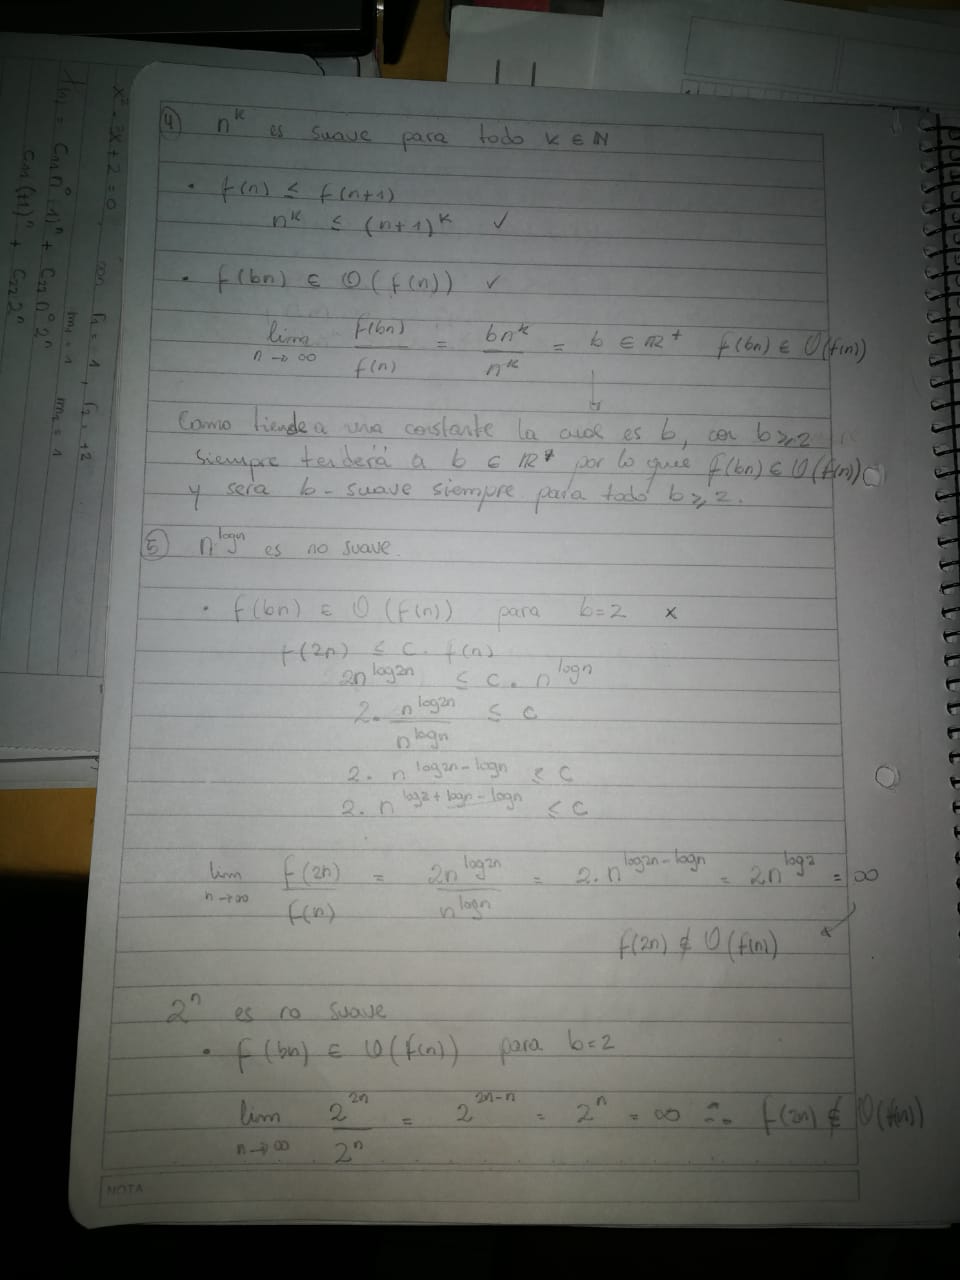 ④ n^k es suave para todo k ∈ ℕ
• f(n) ≤ f(n+1)
n^k ≤ (n+1)^k ✓
• f(bn) ∈ O(f(n)) ✓
lim n→∞ f(bn)/f(n) = bn^k/n^k = b ∈ ℝ⁺ f(bn) ∈ O(f(n))
Como tiende a una constante la cual es b, con b≥2
siempre tenderá a b ∈ ℝ⁺ por lo que f(bn) ∈ O(f(n))
y será b-suave siempre para todo b≥2.
⑤ n^logn es no suave.
• f(bn) ∈ O(f(n)) para b=2 x
f(2n) ≤ c. f(n)
2n^log2n ≤ c. n^logn
2. n^log2n/n^logn ≤ c
2. n^log2n-logn ≤ c
2. n^log2+logn-logn ≤ c
lim n→∞ f(2n)/f(n) = 2n^log2n/n^logn = 2.n^log2n-logn = 2n^log2 = ∞
f(2n) ∉ O(f(n))
2^n es no suave
• f(bn) ∈ O(f(n)) para b=2
lim n→∞ 2^2n/2^n = 2^2n-n = 2^n = ∞ ∴ f(2n) ∉ O(f(n))
NOTA
x² - 3x + 2 = 0, con r₁ = 1, r₂ = +2
m₁ = 1 m₂ = 1